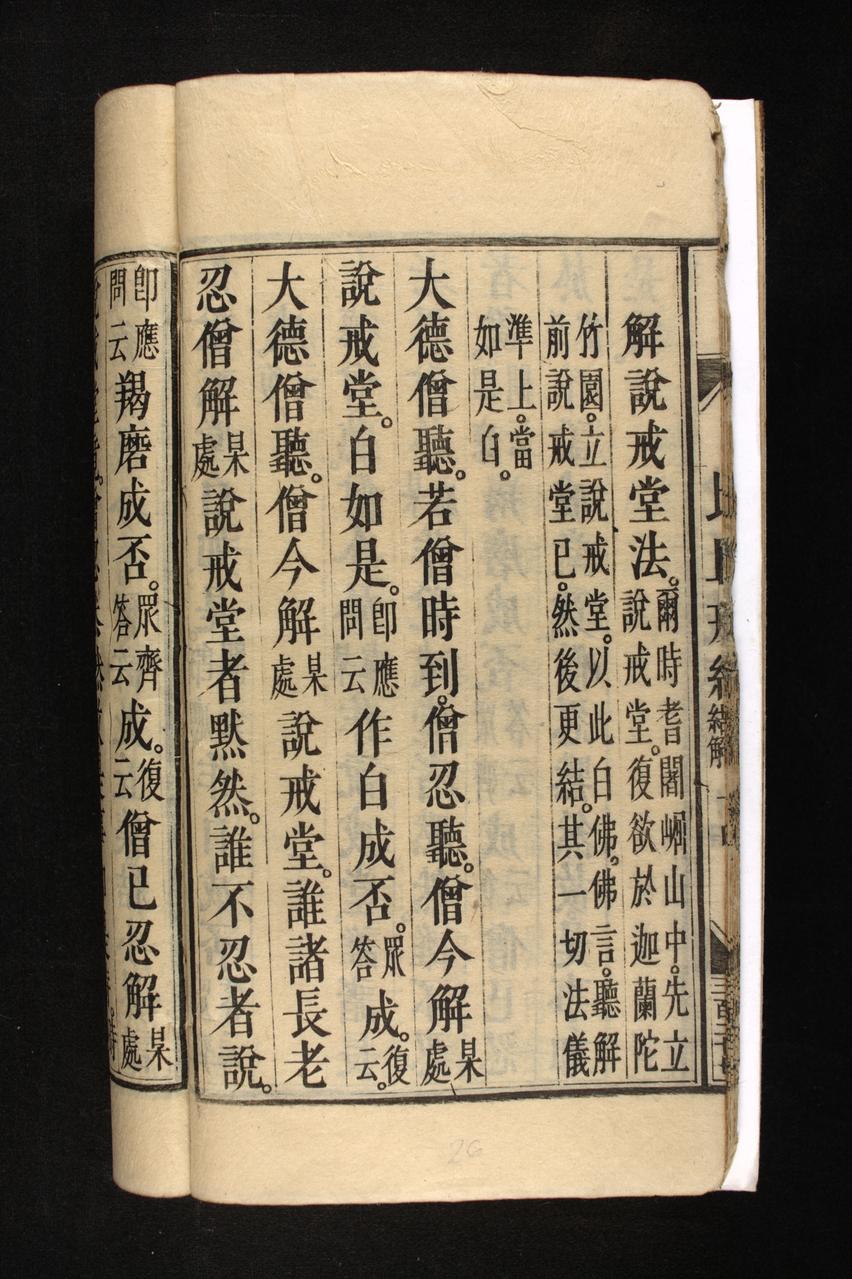 解說戒堂法。爾時耆闍崛山中。先立說戒堂。復欲於迦蘭陀
竹園。立說戒堂。以此白佛。佛言。聽解前說戒堂已。然後更結。其一切法儀
準上。當如是白。
大德僧聽。若僧時到。僧忍聽。僧今解某處
說戒堂。白如是。即應問云作白成否。眾答成。復云。
大德僧聽。僧今解某處說戒堂。誰諸長老
忍僧解某處說戒堂者默然。誰不忍者說。
即應問云羯磨成否。眾齊答云成。復云僧已忍解某處
結解
26